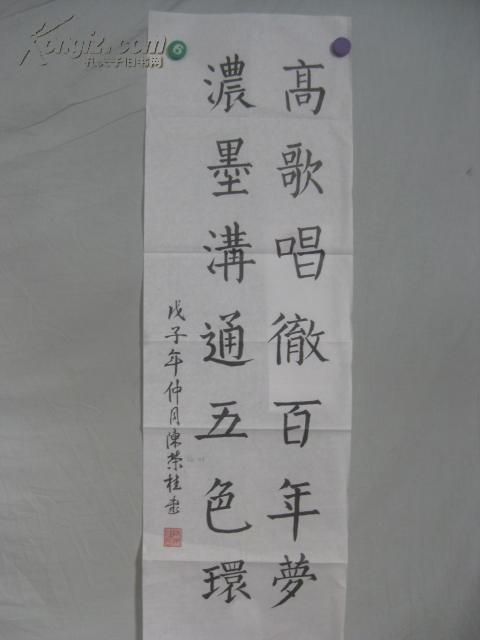 高歌唱徹百年夢
濃墨溝通五色環
戊子年仲月陳榮桂書
Kongfz.com
孔夫子旧书网